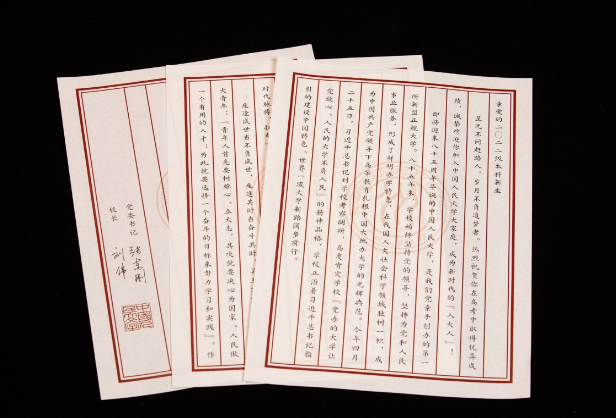 亲爱的二〇二二级本科新生
星光不问赶路人，岁月不负追梦者。热烈祝贺你在高考中取得优异成
绩，诚挚欢迎你加入中国人民大学大家庭，成为新时代的“人大人”！
即将迎来八十五周年华诞的中国人民大学，是我们党亲手创办的第一
所新型正规大学。八十五年来，学校始终坚持党的领导，坚持为党和人民
事业服务，形成了鲜明办学特色，在我国人文社会科学领域独树一帜，成
为中国共产党领导下高等教育扎根中国大地办大学的光辉典范。今年四月
二十五日，习近平总书记到学校考察调研，高度肯定学校“党办的大学让
党放心、人民的大学不负人民”的精神品格，学校正沿着习近平总书记指
引的建设中国特色、世界一流大学新路阔步前行。
时代脉搏，
生逢盛世当不负盛世，生逢其时当奋斗其时。
大青年：“青年人首先要树雄心、立大志，其次就要决心为国家、人民做
一个有用的人才；为此就要选择一个奋斗的目标来努力学习和实践”。作
党委书记 张东刚
校长 刘伟